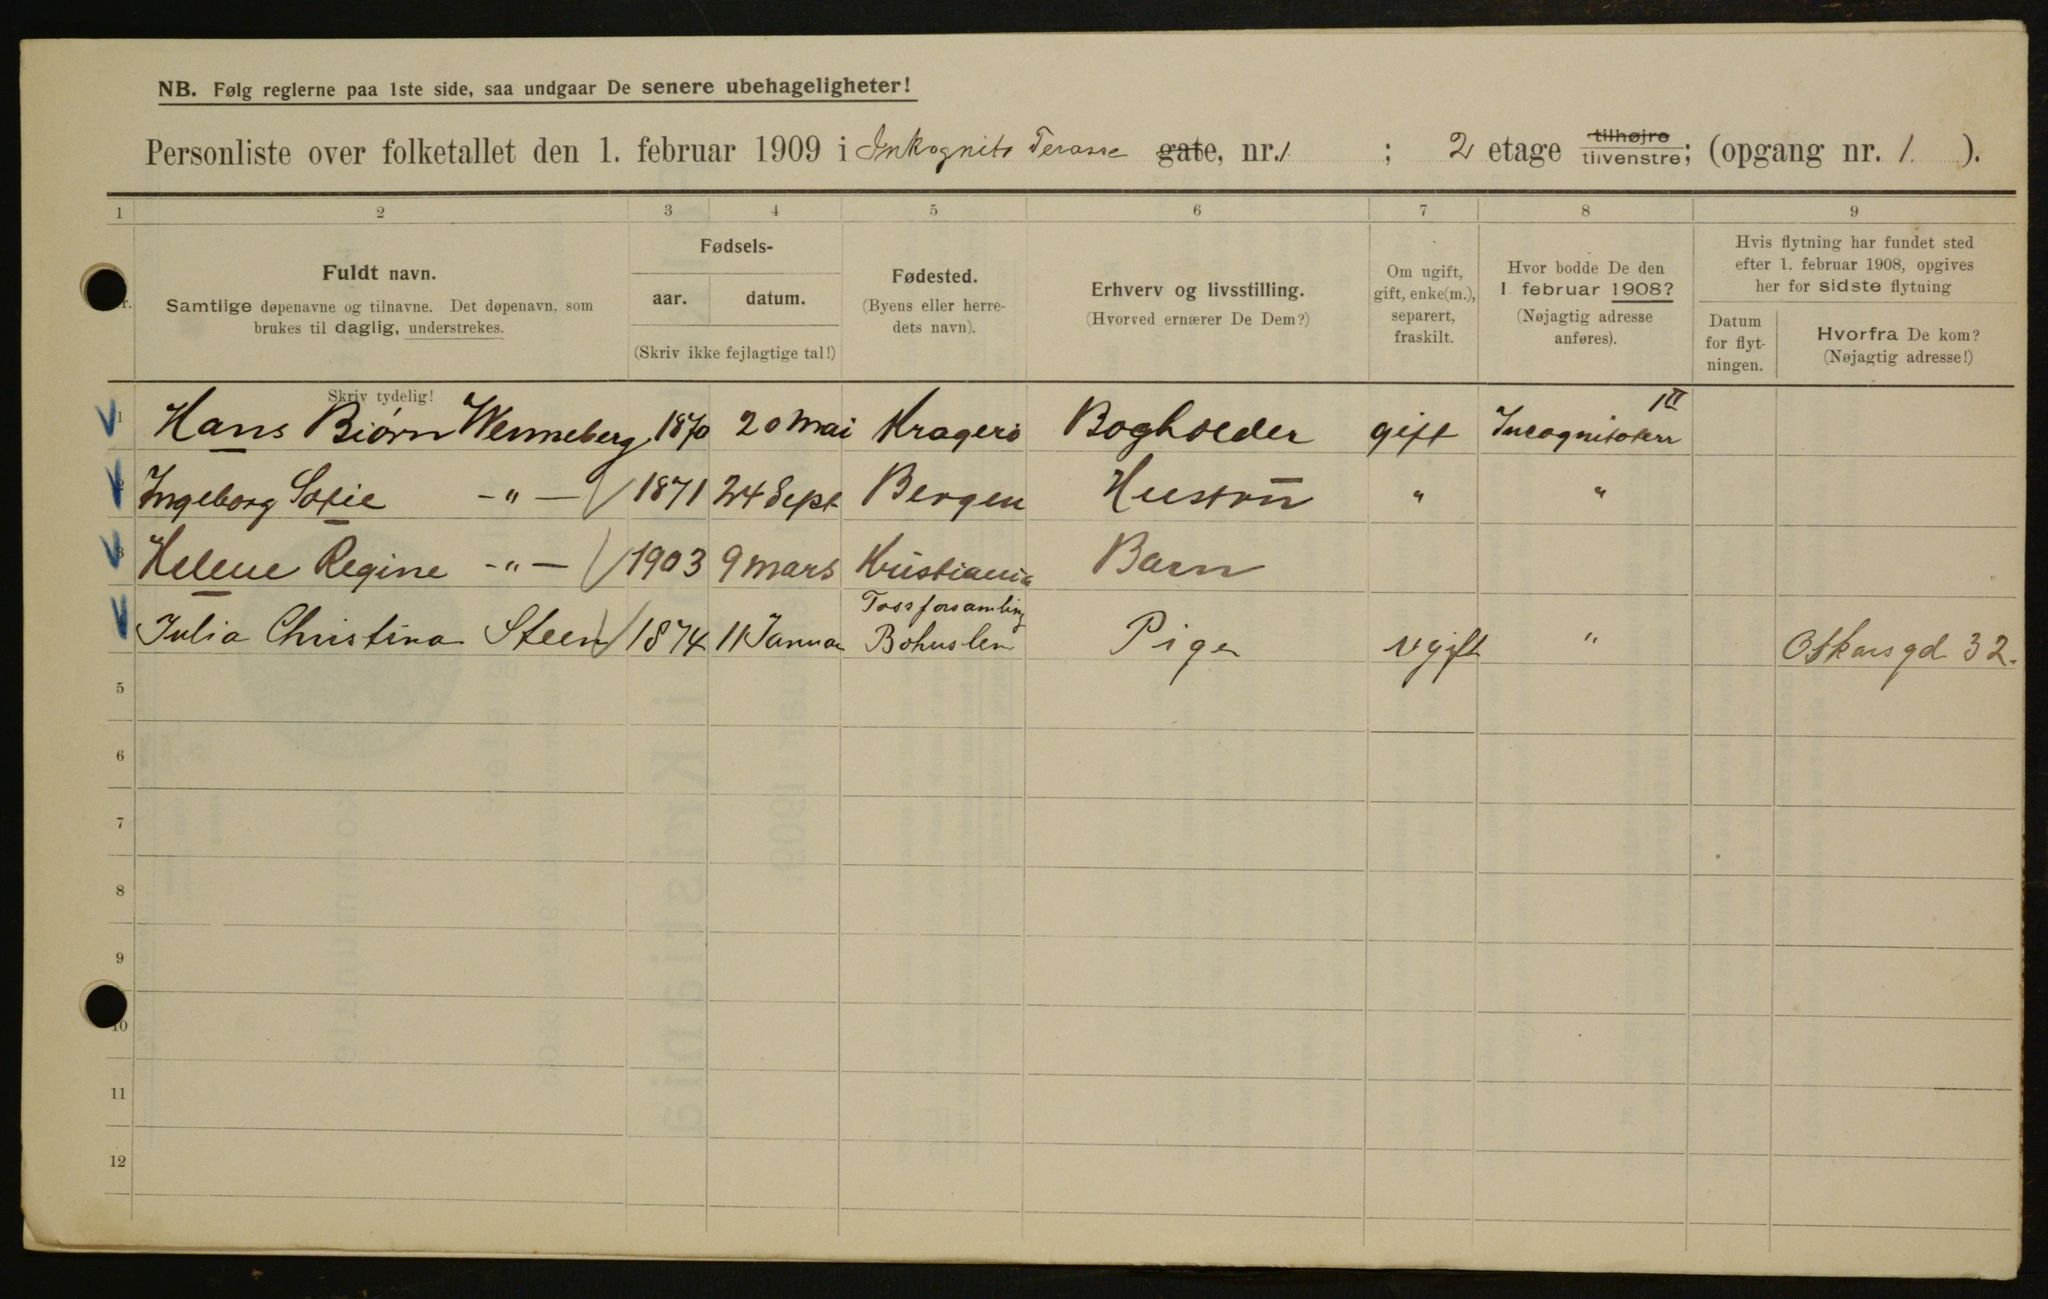 NB. Følg reglerne paa 1ste side, saa undgaar De senere ubehageligheter!
Personliste over folketallet den 1. februar 1909 i Inkognito Terasse gate, nr. 1 ; 2 etage tilhøjre tilvenstre; (opgang nr. 1 ).
1 2 3 4 5 6 7 8 9
Fuldt navn.
Samtlige døpenavne og tilnavne. Det døpenavn, som
brukes til daglig, understrekes.
Skriv tydelig!
Fødsels-
aar. datum.
(Skriv ikke fejlagtige tal!)
Fødested.
(Byens eller herre-
dets navn).
Erhverv og livsstilling.
(Hvorved ernærer De Dem?)
Om ugift,
gift, enke(m.),
separert,
fraskilt.
Hvor bodde De den
1 februar 1908?
(Nøjagtig adresse
anføres).
Hvis flytning har fundet sted
efter 1. februar 1908, opgives
her for sidste flytning
Datum
for flyt-
ningen.
Hvorfra De kom?
(Nøjagtig adresse!)
1 Hans Biørn Wenneberg 1870 20 Mai Kragerö Bogholder gift Incognitoterr 1 II
2 Ingeborg Sofie -"- 1871 24 Sept Bergen Hustru " "
3 Helene Regine -"- 1903 9 Mars Kristiania Barn
Julia Christina Steen 1874 11 Januar Tossforsamling Bohuslen Pige ugift " Oskarsgd 32.
5
6
7
8
9
10
11
12